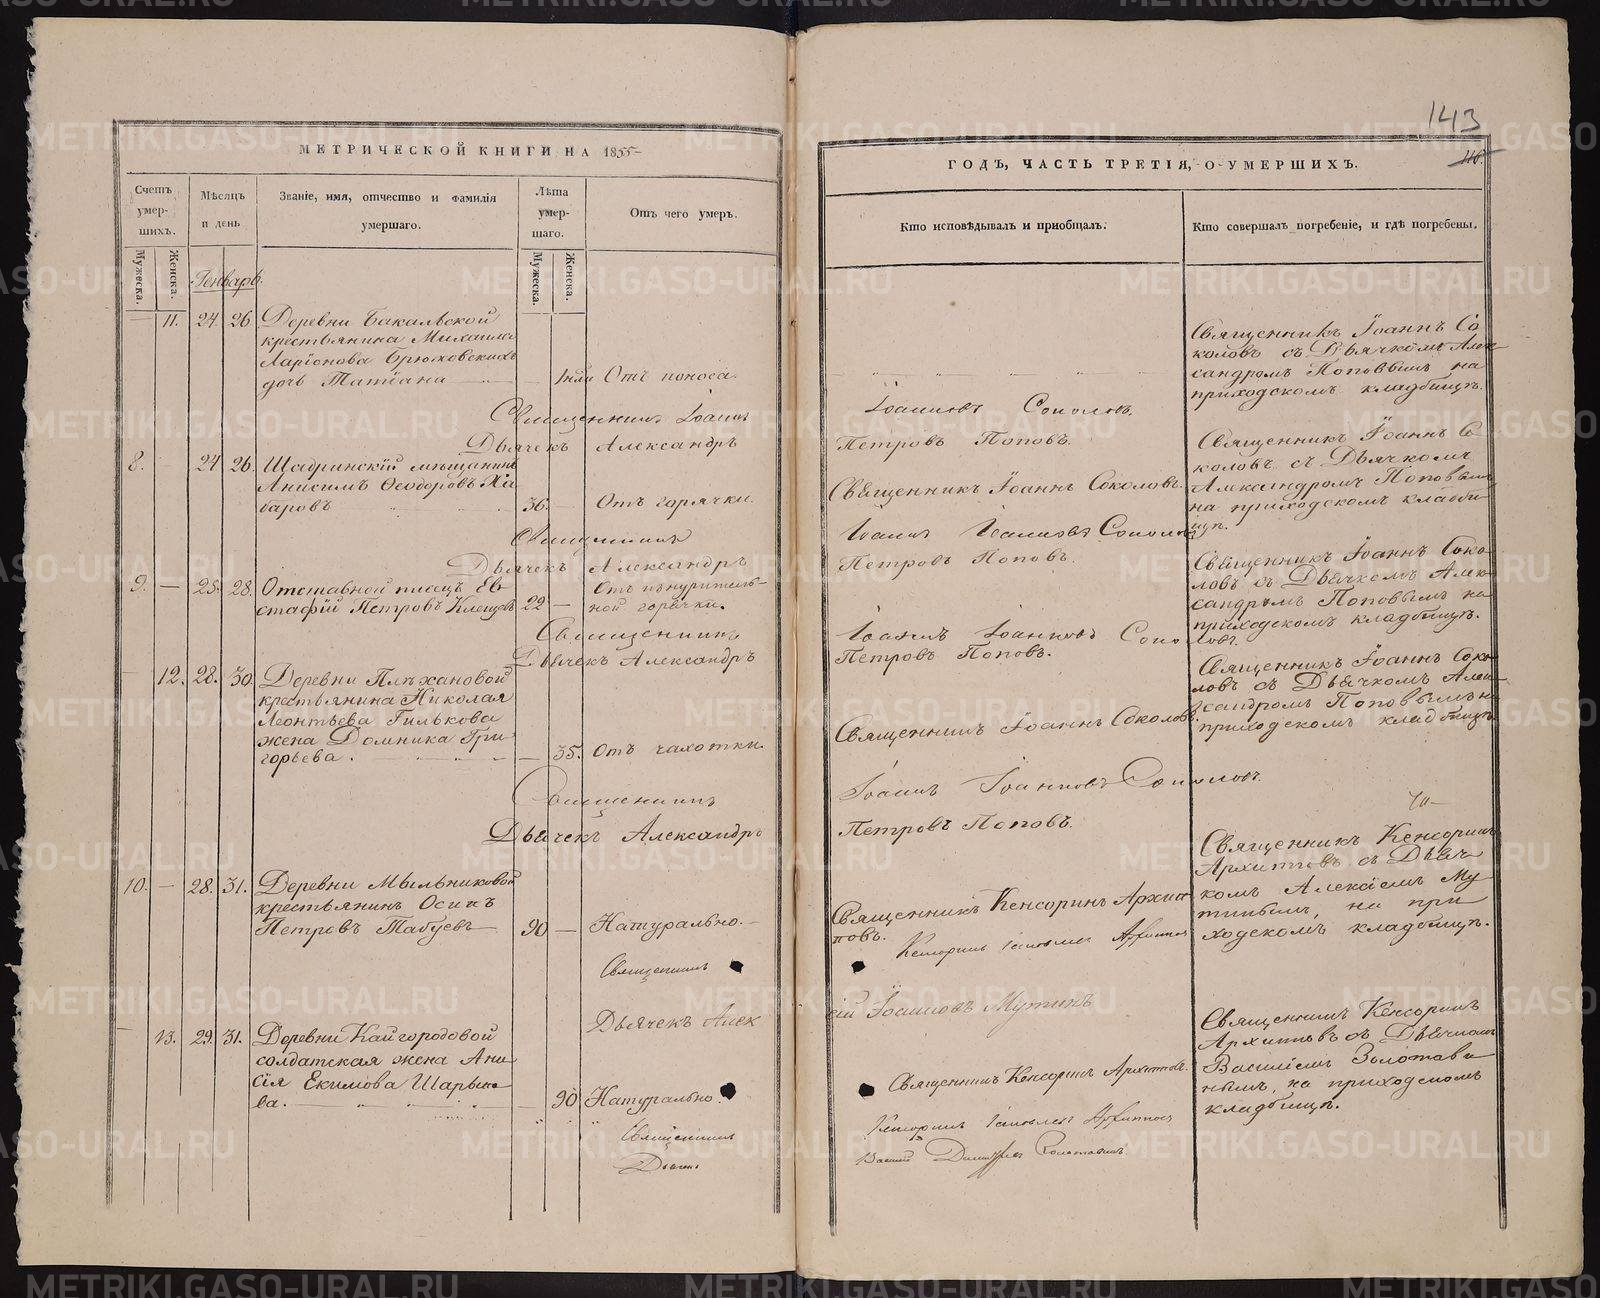 143
МЕТРИЧЕСКОЙ КНИГИ НА 1855
Счетъ умершихъ.
Мѣсяцъ и день
Званіе, имя, отчество и фамилія умершаго.
Лѣта умершаго.
Отъ чего умеръ.
Мужеска.
Женска.
Мужеска.
Женска.
Генварь.
11. 24 26 Деревни Бакальской
крестьянина Михаила
Ларіонова Брюховскихъ
дочь Татіана 1 нди Отъ поноса.
Священник Іоаннъ
Дьячекъ Александръ
8. 24 26. Шадринскій мѣщанинъ
Анисимъ Ѳеодоровъ Ха
баровъ 36. Отъ горячки.
Священникъ
Дьячекъ Александръ
9. — 25. 28. Отставной писецъ Ев
стафій Петровъ Клещевъ 22 — Отъ изнурительной горячки.
Священникъ
Дьячекъ Александръ
12. 28. 30. Деревни Плѣхановой
крестьянина Николая
Леонтьева Гилькова
жена Домника Гри
горьева. — 35. Отъ чахотки.
Священникъ
Дьячекъ Александръ
10. — 28. 31. Деревни Мыльниковой
крестьянинъ Осипъ
Петровъ Табуевъ 90 — Натурально.
Священникъ
Дьячекъ Алек
13. 29. 31. Деревни Кайгородовой
солдатская жена Ани
сія Екимова Шарыпо
ва. 90 Натурально.
Священникъ
Дьячекъ
ГОДЪ, ЧАСТЬ ТРЕТІЯ, О УМЕРШИХЪ.
Кто исповѣдывалъ и пріобщалъ.
Кто совершалъ погребеніе, и гдѣ погребены.
Священникъ Іоаннъ Со
коловъ съ Дьячкомъ Алек
сандромъ Поповымъ на
приходскомъ кладбищѣ.
Іоанновъ Соколовъ.
Петровъ Поповъ.
Священникъ Іоаннъ Со
коловъ съ Дьячкомъ
Александромъ Поповымъ
на приходскомъ кладби
щѣ.
Священникъ Іоаннъ Соколовъ.
Іоаннъ Іоанновъ Соколовъ
Петровъ Поповъ.
Священникъ Іоаннъ Соко
ловъ съ Дьячкомъ Алек
сандромъ Поповымъ на
приходскомъ кладбищѣ.
Іоаннъ Іоанновъ Соколовъ.
Петровъ Поповъ.
Священникъ Іоаннъ Соко
ловъ съ Дьячкомъ Алек
сандромъ Поповымъ на
приходскомъ кладбищѣ
Священникъ Іоаннъ Соколовъ.
Іоаннъ Іоанновъ Соколовъ.
Петровъ Поповъ.
Священникъ Кенсоринъ
Архиповъ съ Дьяч
комъ Алексіемъ Му
тинымъ, на при
ходскомъ кладбищѣ.
Священникъ Кенсоринъ Архип
повъ.
Кенсоринъ Архипповъ
сій Іоанновъ Мутинъ
Священникъ Кенсоринъ
Архиповъ съ Дьячкомъ
Василіемъ Золотави
нымъ, на приходскомъ
кладбищѣ.
Священникъ Кенсоринъ Архиповъ.
Кенсоринъ Архипповъ
Василій Золотавинъ
METRIKI.GASO-URAL.RU